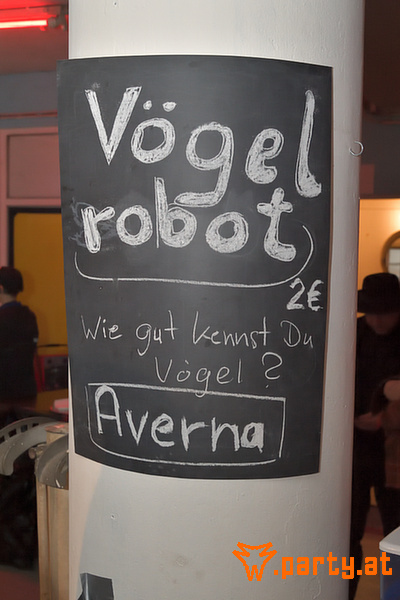 Vögel
robot
2€
Wie gut kennst Du
Vögel?
Averna
w.party.at